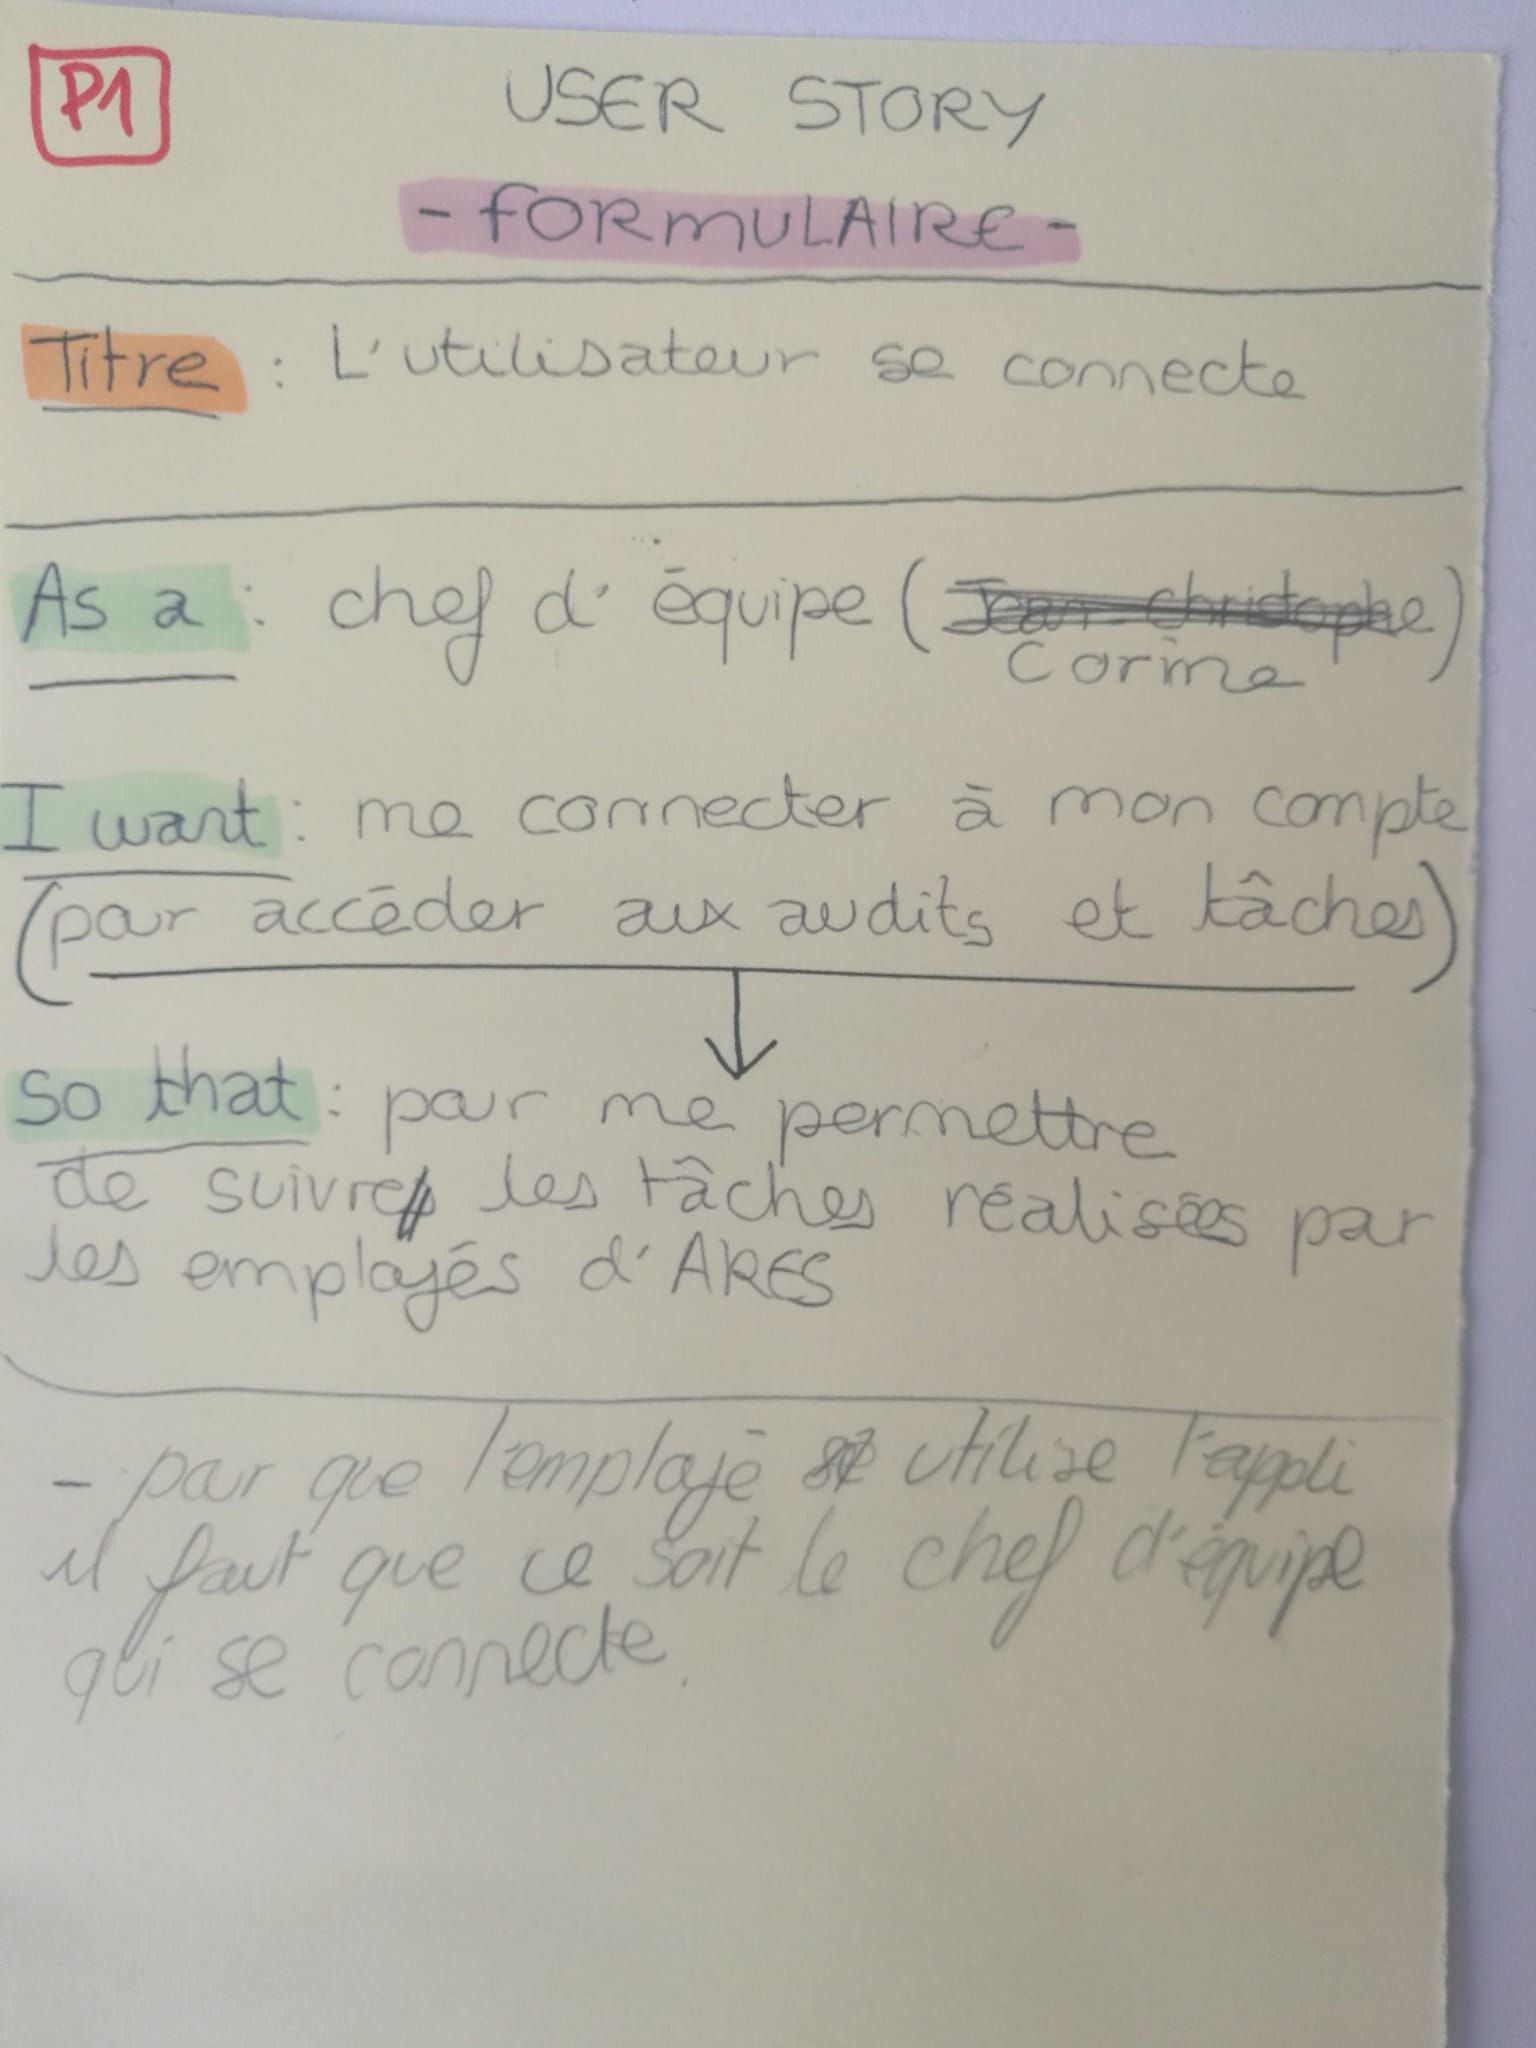 P1
USER STORY
- FORMULAIRE -
Titre : L'utilisateur se connecte
As a : chef d'équipe (Jean-Christophe)
Corine
I want : me connecter à mon compte
(pour accéder aux audits et tâches)
So that : pour me permettre
de suivre les tâches réalisées par
les employés d'ARES
- pour que l'employé utilise l'appli
il faut que ce soit le chef d'équipe
qui se connecte.